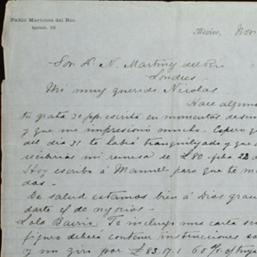 Pablo Martinez del Rio
Mexico, Nov
Sor D. N. Martinez del Rio
Londres
Mi muy querido Nicolas
Hace algunos
tu grata 30 ppp. escrita en momentos de
y que me impresionó mucho. Espero q
del dia 31 te habrá tranquilizado y que
recibirías mi remesa de £80 fha 22 d
Hoy escribo á Manuel para que te m
das.
De salud estamos bien á Dios grac
darte of de negocios.
Lalo Barrio. Te incluyo una carta
debería contener instrucciones
y un giro por £83.17.1 60 d/